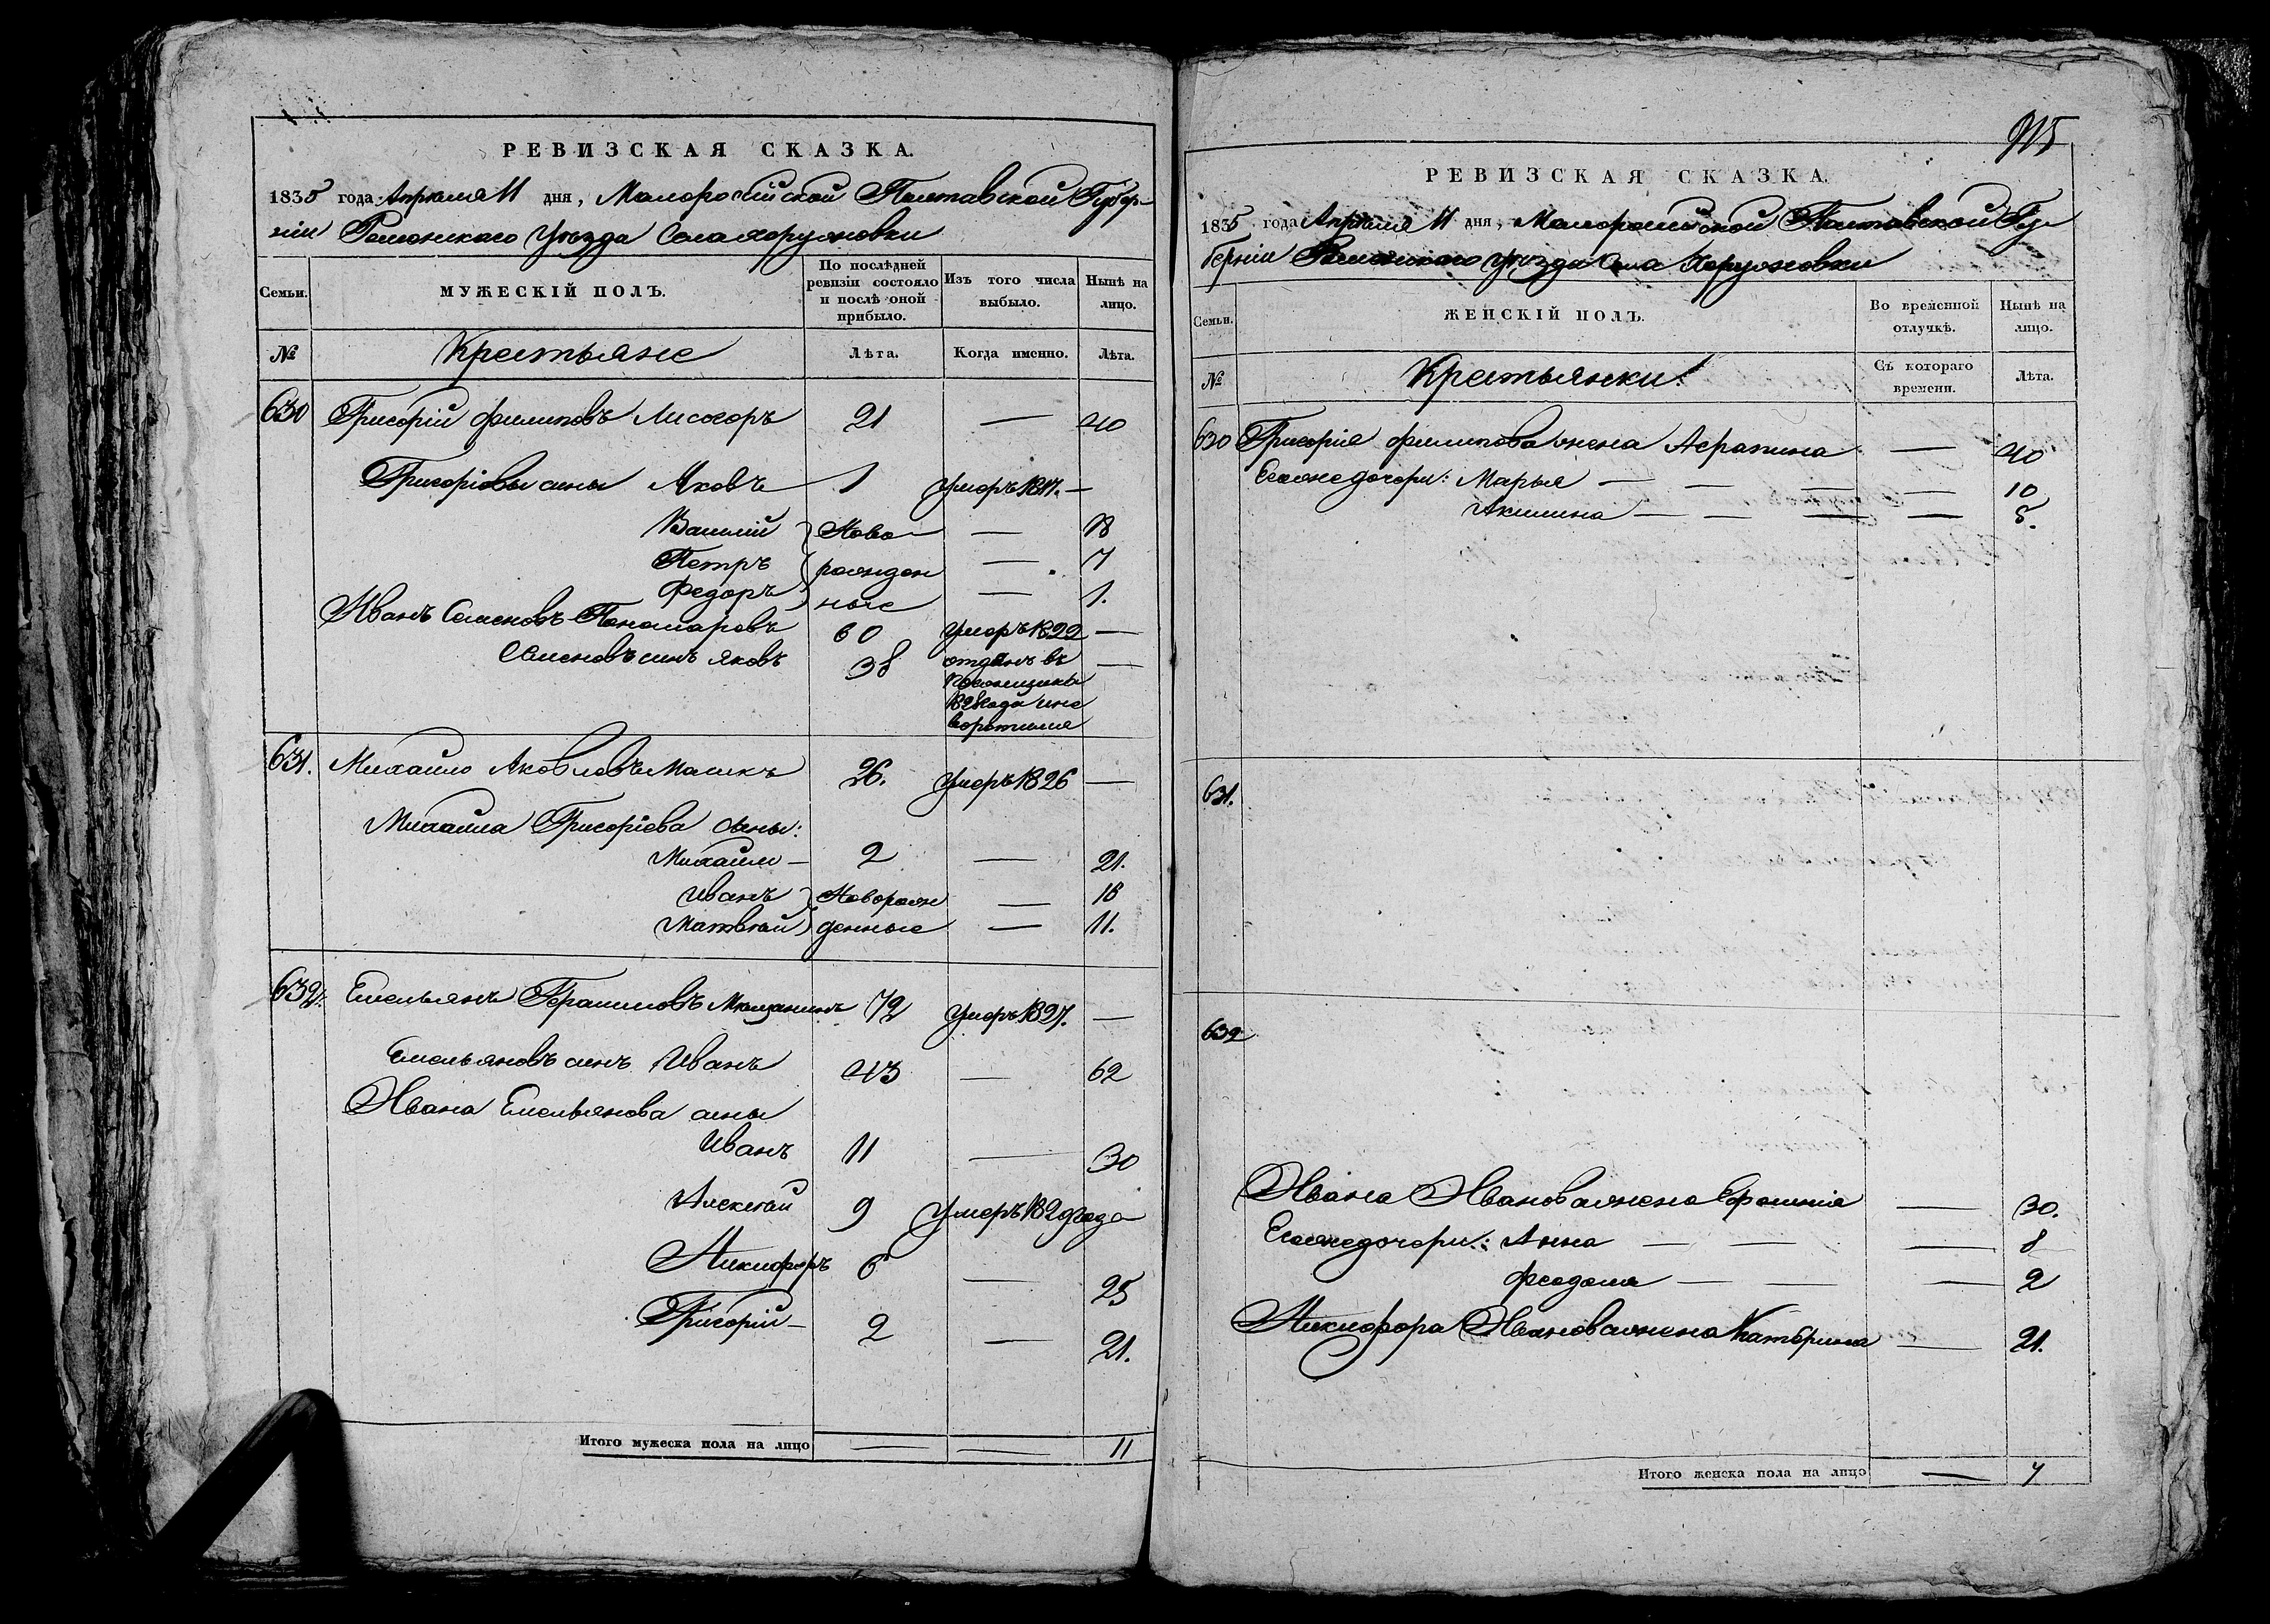 РЕВИЗСКАЯ СКАЗКА.
1835 года Апреля 11 дня, Малоросійской Полтавской Губер-
ніи Роменскаго Уѣзда Села Коружовки
Семьи.
МУЖЕСКІЙ ПОЛЪ.
По послѣдней ревизіи состояло и послѣ оной прибыло.
Изъ того числа выбыло.
Нынѣ на лицо.
№
Крестьяне
Лѣта.
Когда именно.
Лѣта.
630 Григорій Филиповъ Лисогоръ 21 — 40
Григоріовы сины Яковъ 1 Умеръ 1817. —
Василій Ново — 18
Петръ рожден — 7
Федоръ ные — 1.
Иванъ Семеновъ Пономаровъ 60 Умеръ 1822 —
Семеновъ синъ Яковъ 38 отданъ въ —
1828 года и не
воротился
631. Михайло Яковлевъ Масикъ 26. Умеръ 1826 —
Михайла Григоріева сины:
Михайло — 2 — 21.
Иванъ Новорож — 18
Матвѣй денные — 11.
632. Емельянъ Герасимовъ 72 Умеръ 1827. —
Емельяновъ синъ Иванъ 43 — 62
Ивана Емельянова сины
Иванъ 11 — 30
Алексѣй 9 Умеръ 1829 года
Никифоръ 6 — 25
Григорій — 2 — 21.
Итого мужеска пола на лицо — — 11
915
РЕВИЗСКАЯ СКАЗКА.
1835 года Апреля 11 дня, Малоросійской Полтавской Гу-
берніи Роменскаго Уѣзда Села Коружовки
Семьи.
ЖЕНСКІЙ ПОЛЪ.
Во временной отлучкѣ.
Нынѣ на лицо.
№
Крестьянки:
Съ котораго времени.
Лѣта.
630 Григорія Филипова жена Аграпина — 40
Егожедочери: Марья — — — — 10
Акилина — — — — 5.
631.
632
Ивана Иванова жена Ефросинія — 30.
Егожедочери: Анна — — — 8
Феодосія — — — 2
Никифора Иванова жена Катерина — 21.
Итого женска пола на лицо — 7